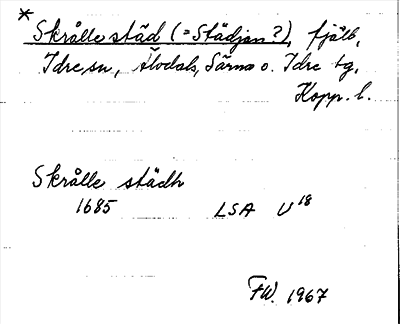 *
Skrålle städ (=Städjan?), fjäll,
Idre sn, Älvdals, Särna o. Idre tg,
Kopp. l.
Skrålle städh
1685 LSA U 18
FW. 1967